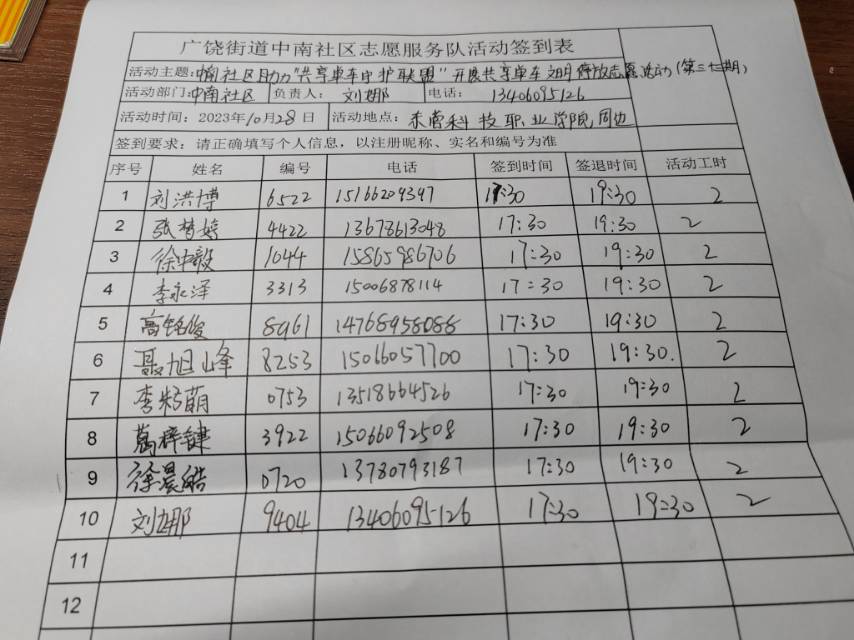 广饶街道中南社区志愿服务队活动签到表
活动主题：中南社区助力"共享单车守护联盟"开展共享单车文明停放志愿活动（第三十七期）
活动部门：中南社区 负责人： 刘娜 电话： 13406095126
活动时间：2023年10月28日 活动地点： 东营科技职业学院周边
签到要求：请正确填写个人信息，以注册昵称、实名和编号为准
序号 姓名 编号 电话 签到时间 签退时间 活动工时
1 刘洪博 6522 15166209397 17:30 19:30 2
2 张梦婷 4422 13678613048 17:30 19:30 2
3 徐中毅 1044 15865986706 17:30 19:30 2
4 李永泽 3313 15006878114 17:30 19:30 2
5 高铭俊 8961 14768958088 17:30 19:30 2
6 聂旭峰 8253 15066057700 17:30 19:30. 2
7 李 萌 0753 13518664526 17:30 19:30 2
8 葛梓键 3922 15066092508 17:30 19:30 2
9 徐晨皓 0720 13780793187 17:30 19:30 2
10 刘娜 9404 13406095126 17:30 19:30 2
11
12